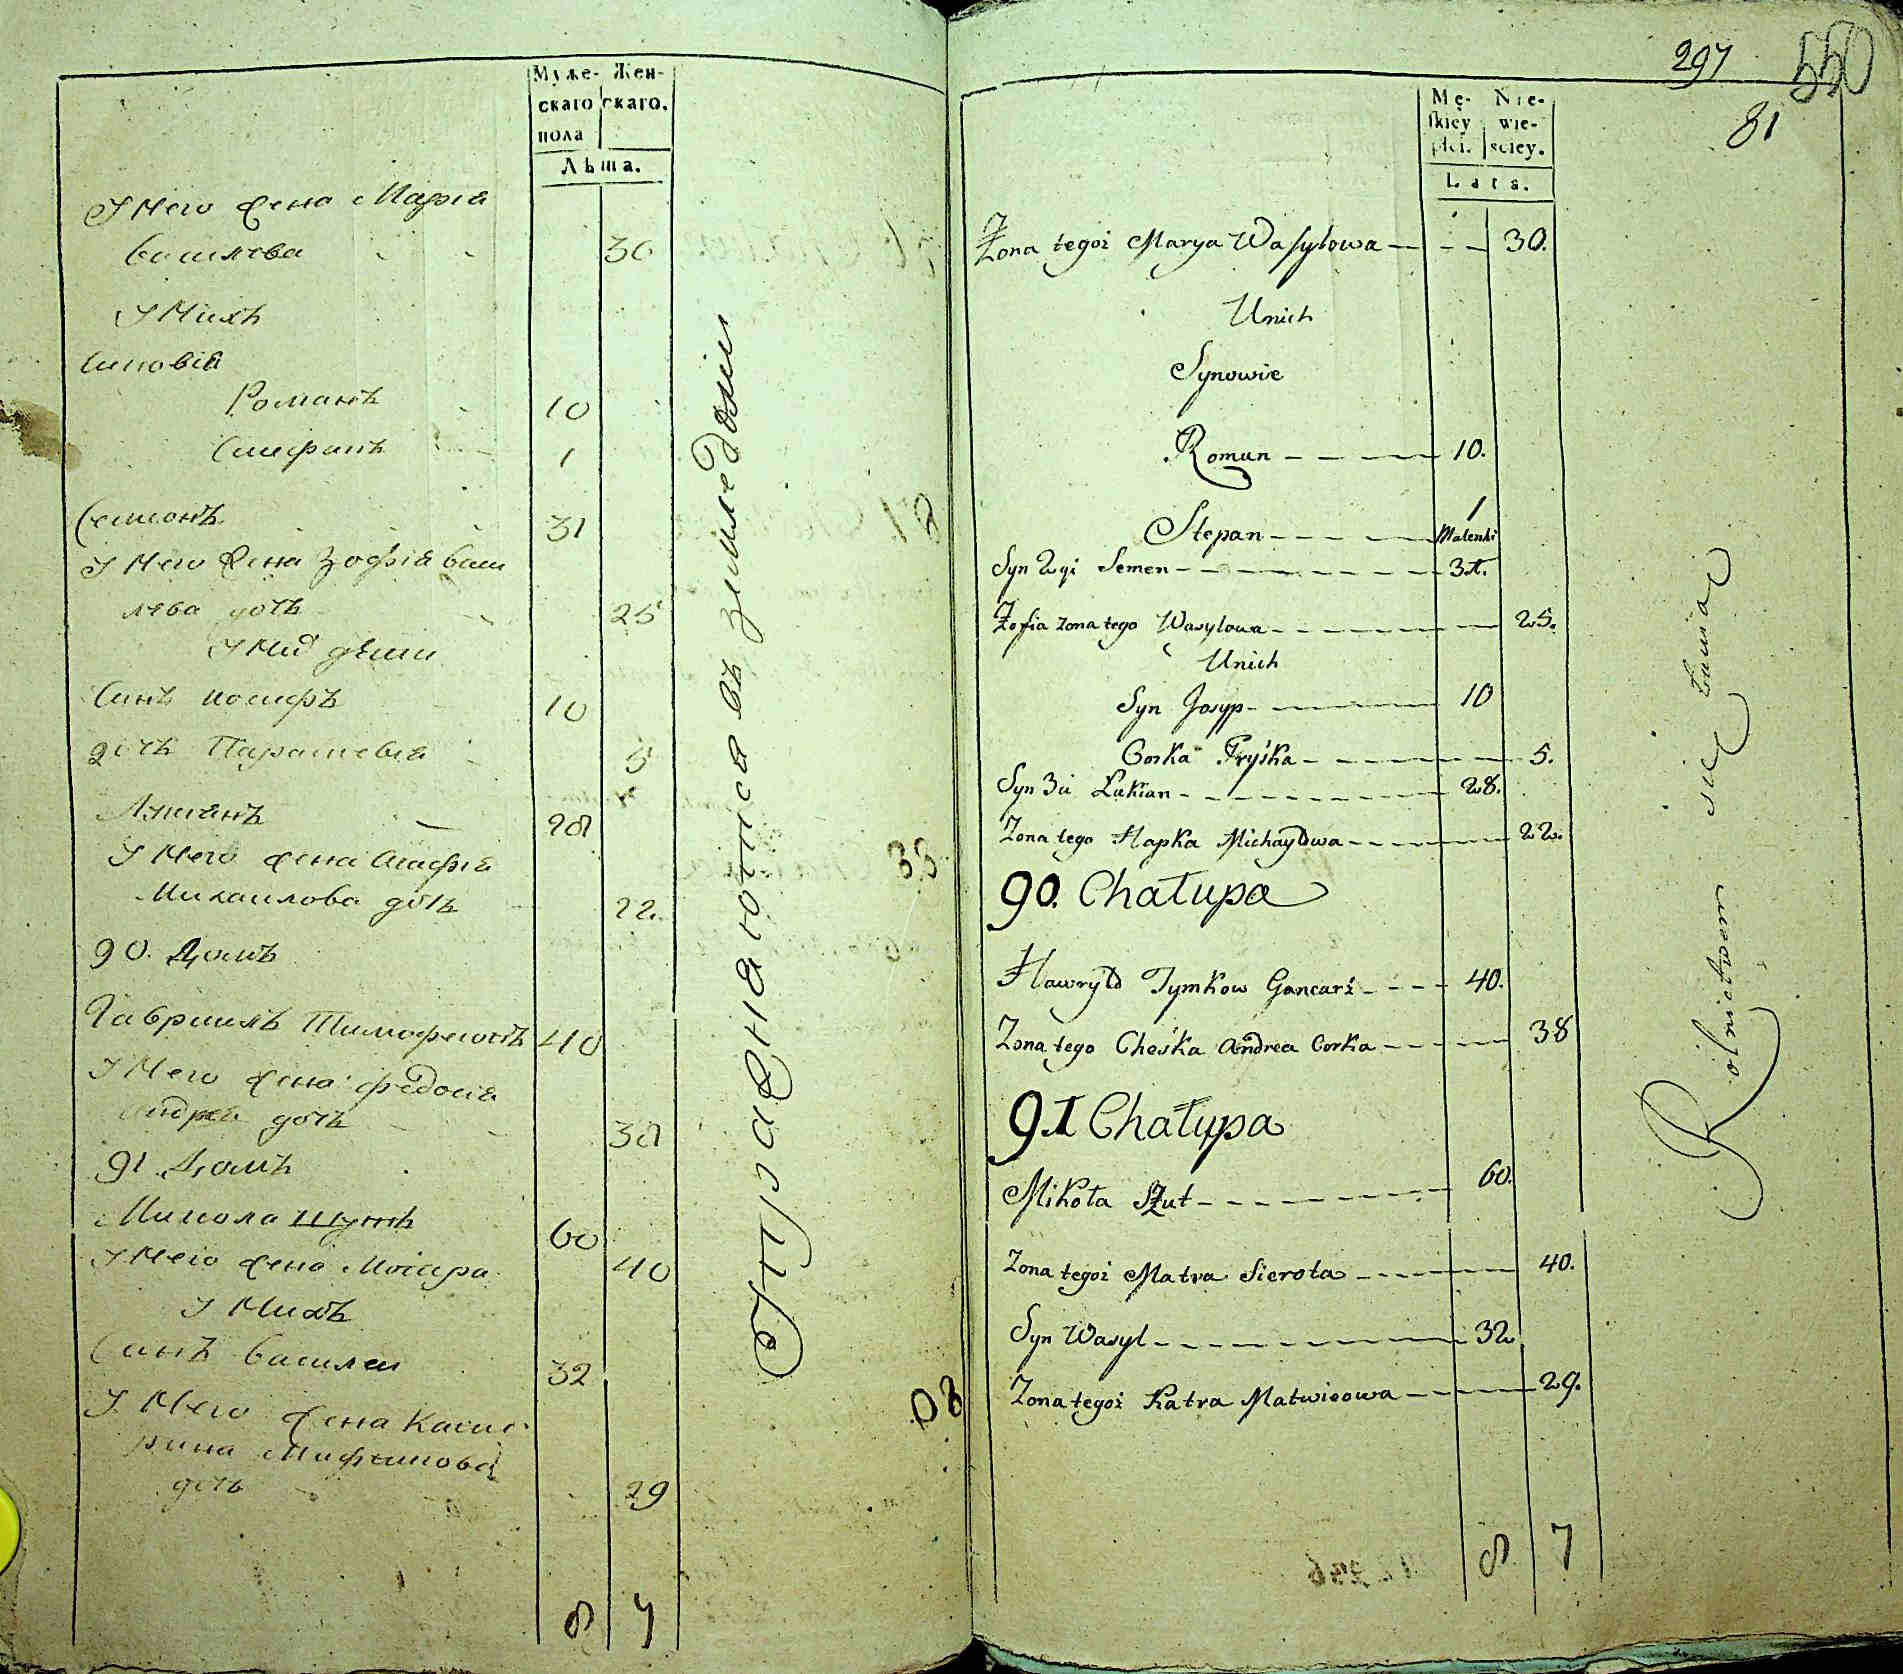 Муже- Жен-
скаго скаго.
пола
Лѣта.
У него жена Марія
василева 30
У нихъ
синовія
Романъ 10
Стефанъ 1
Семионъ 31
У него жена Зофія васи
лева дочь 25
У них дѣти
Синъ иосифъ 10
дочь Параскевія 5
Лукіянъ 28
У него жена Агафія
Михаилова дочь 22.
90. Домъ
Гавриилъ Тимофеювъ 40
У него жена федосія
андрея дочь 38
91 Домъ
Микола Шутъ 60
У него жена Мотра 40
У нихъ
Синъ василеи 32
У него жена Кате
рина Матфиова
дочь 29
8 7
Упражняются въ земледелии
297 550
81
Mę- Nie-
skiey wie-
płci. sciey.
Lata.
Zona tegoż Marya Wasylowa 30.
Unich
Synowie
Roman 10.
Stepan 1
Malenki
Syn 2gi Semen 31.
Zofia zona tego Wasylowa 25.
Unich
Syn Josyp 10
Corka Pryśka 5.
Syn 3ci Łukian 28.
Zona tego Hapka Michayłowa 22.
90. Chałupa
Hawryło Tymkow Gancarż 40.
Zona tego Cheśka Andrea Corka 38
91 Chałupa
Mikoła Szut 60.
Zona tegoż Matra Sierota 40.
Syn Wasyl 32
Zona tegoż Katra Matwieowa 29.
8 7
Rolnictwem się bawią